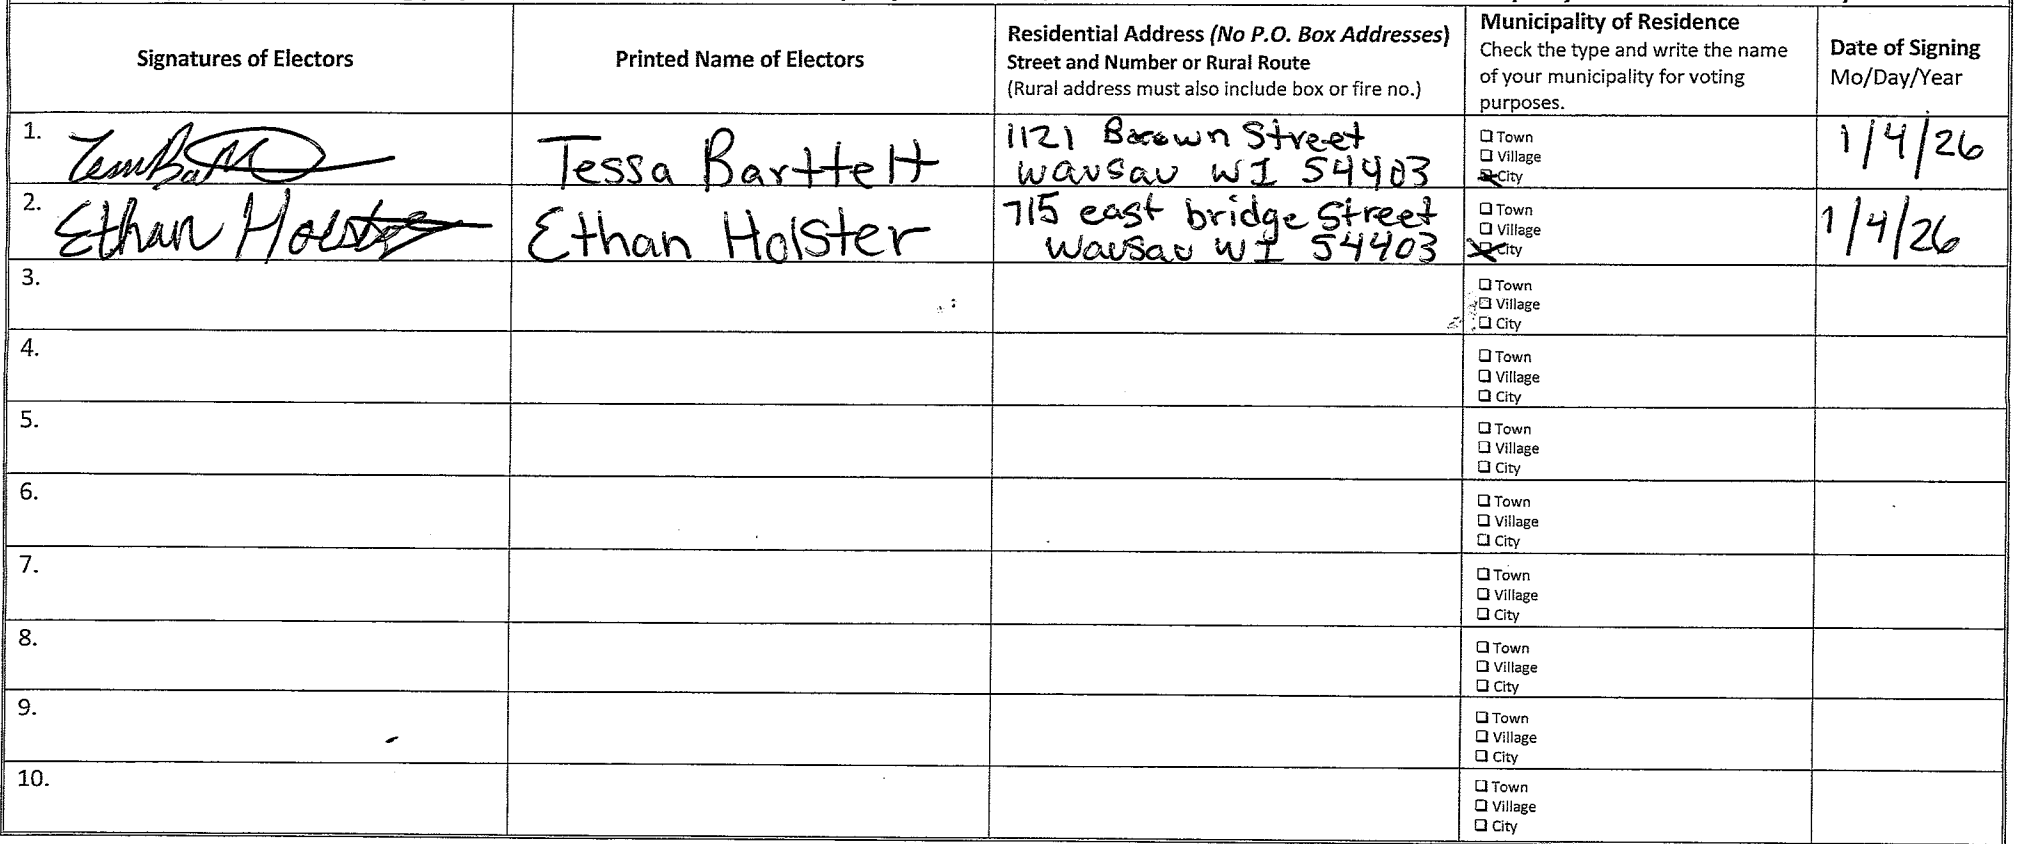 Signatures of Electors
Printed Name of Electors
Residential Address (No P.O. Box Addresses)
Street and Number or Rural Route
(Rural address must also include box or fire no.)
Municipality of Residence
Check the type and write the name
of your municipality for voting
purposes.
Date of Signing
Mo/Day/Year
1.
Tessa Barttelt
1121 Brown Street
Wausau WI 54403
Town
Village
City
1/4/26
2.
Ethan Holster
Ethan Holster
715 east bridge Street
Wausau WI 54403
Town
Village
City
1/4/26
3.
Town
Village
City
4.
Town
Village
City
5.
Town
Village
City
6.
Town
Village
City
7.
Town
Village
City
8.
Town
Village
City
9.
Town
Village
City
10.
Town
Village
City